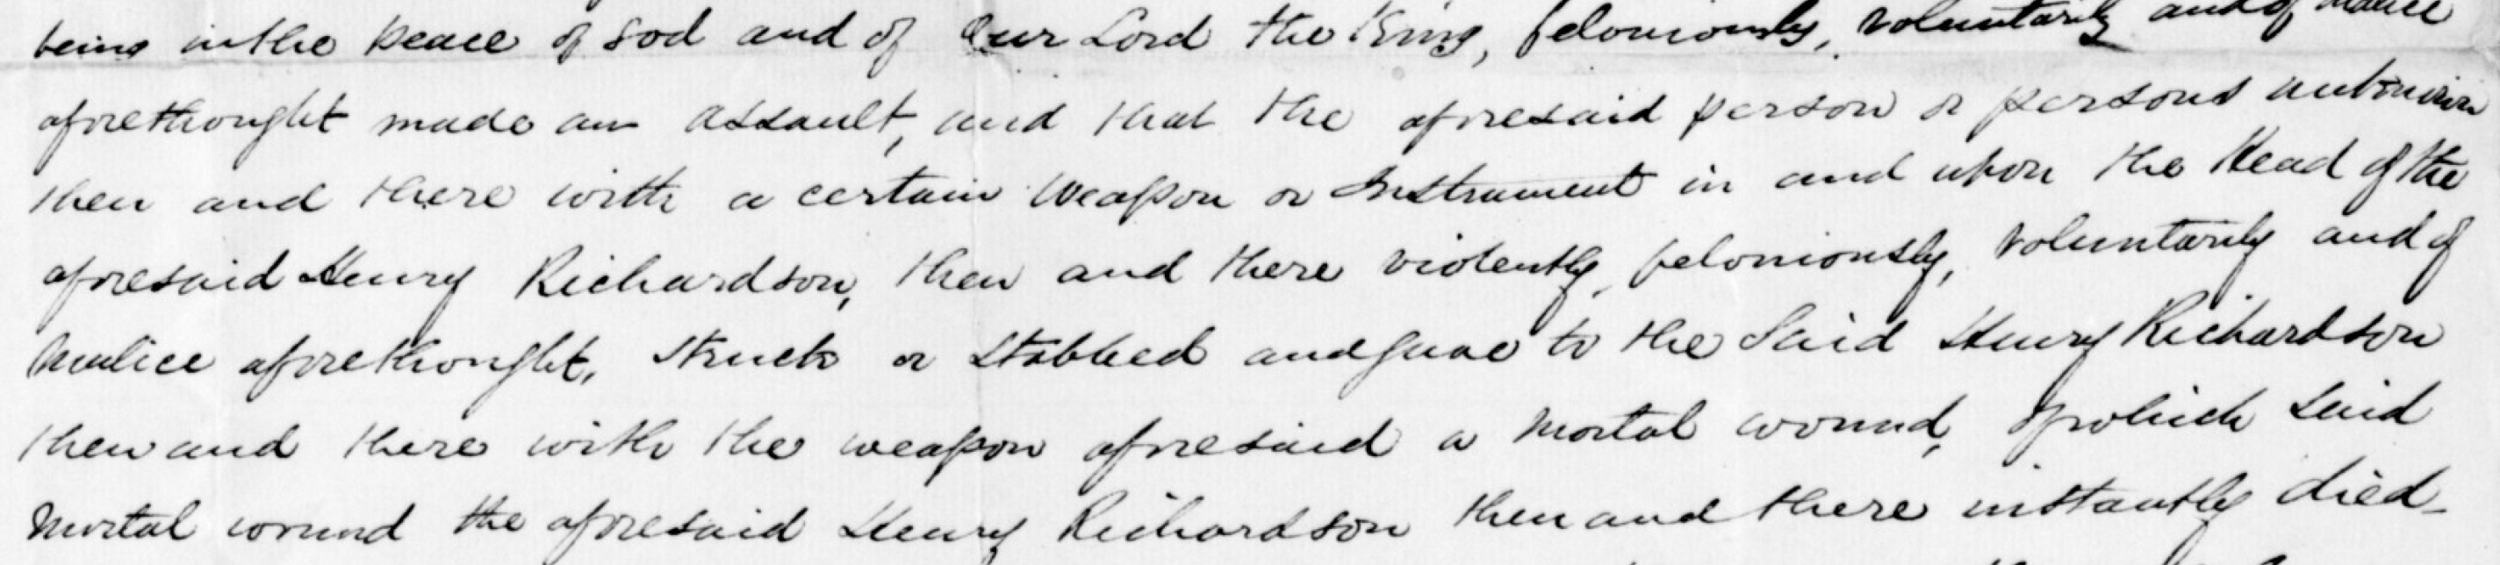 being in the peace of God and of Our Lord the King, feloniously, voluntarily and of malice
aforethought made an assault, and that the aforesaid person or persons unknown
then and there with a certain Weapon or Instrument in and upon the Head of the
aforesaid Henry Richardson, then and there violently, feloniously, voluntarily and of
Malice aforethought, struck or stabbed and gave to the Said Henry Richardson
then and there with the weapon aforesaid a Mortal wound, of which said
Mortal wound the aforesaid Henry Richardson then and there instantly died-